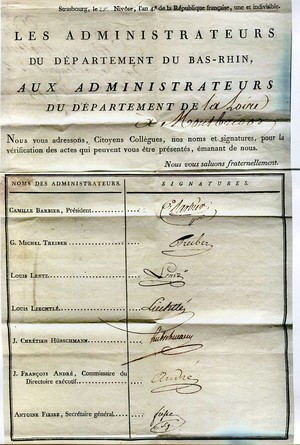 Strasbourg, le 25 Nivôse, l'an 4.e de la République française, une et indivisible.
LES ADMINISTRATEURS
DU DÉPARTEMENT DU BAS-RHIN,
AUX ADMINISTRATEURS
DU DÉPARTEMENT DE la Loire
à Montbrison
Nous vous adressons, Citoyens Collègues, nos noms et signatures, pour la
vérification des actes qui peuvent vous être présentés, émanant de nous.
Nous vous saluons fraternellement.
NOMS DES ADMINISTRATEURS. SIGNATURES.
CAMILLE BARBIER, Président. C Barbier
G. MICHEL TREIBER Treiber
LOUIS LENTZ Lentz
LOUIS LIECHTLÉ Liechtlé
J. CHRÉTIEN HÜBSCHMANN
J. FRANÇOIS ANDRÉ, Commissaire du
Directoire exécutif André
ANTOINE FIESSE, Secrétaire général.